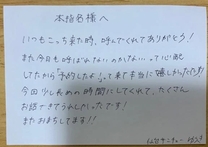 本指名様へ
いつもこっち来た時、呼んでくれてありがとう！
また今日も呼ばれないのかな、、、って心配
してたから「予約したよ」って来て本当に嬉しかったです！
今回少し長めの時間にしてくれて、たくさん
お話できてうれしかったです！
またおまちしてます！！